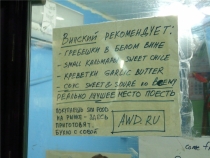 Винский рекомендует:
- гребешки в белом вине
- small кальмары sweet chile
- креветки garlic butter
- сом sweet & soure по всему
реально лучшее место поесть
покупаешь sea food
на рынке - здесь
приготовят,
бухло с собой
AWD.RU